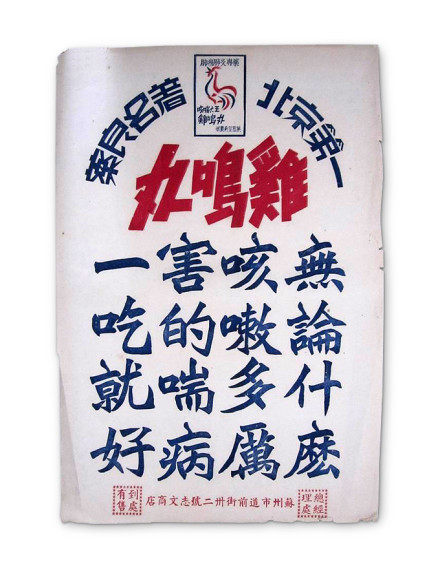 北京第一
著名良藥
雞鳴丸
無論什麼
咳嗽多厲
害的喘病
一吃就好
總經理處
蘇州市道前街卅二號志文商店
到處有售